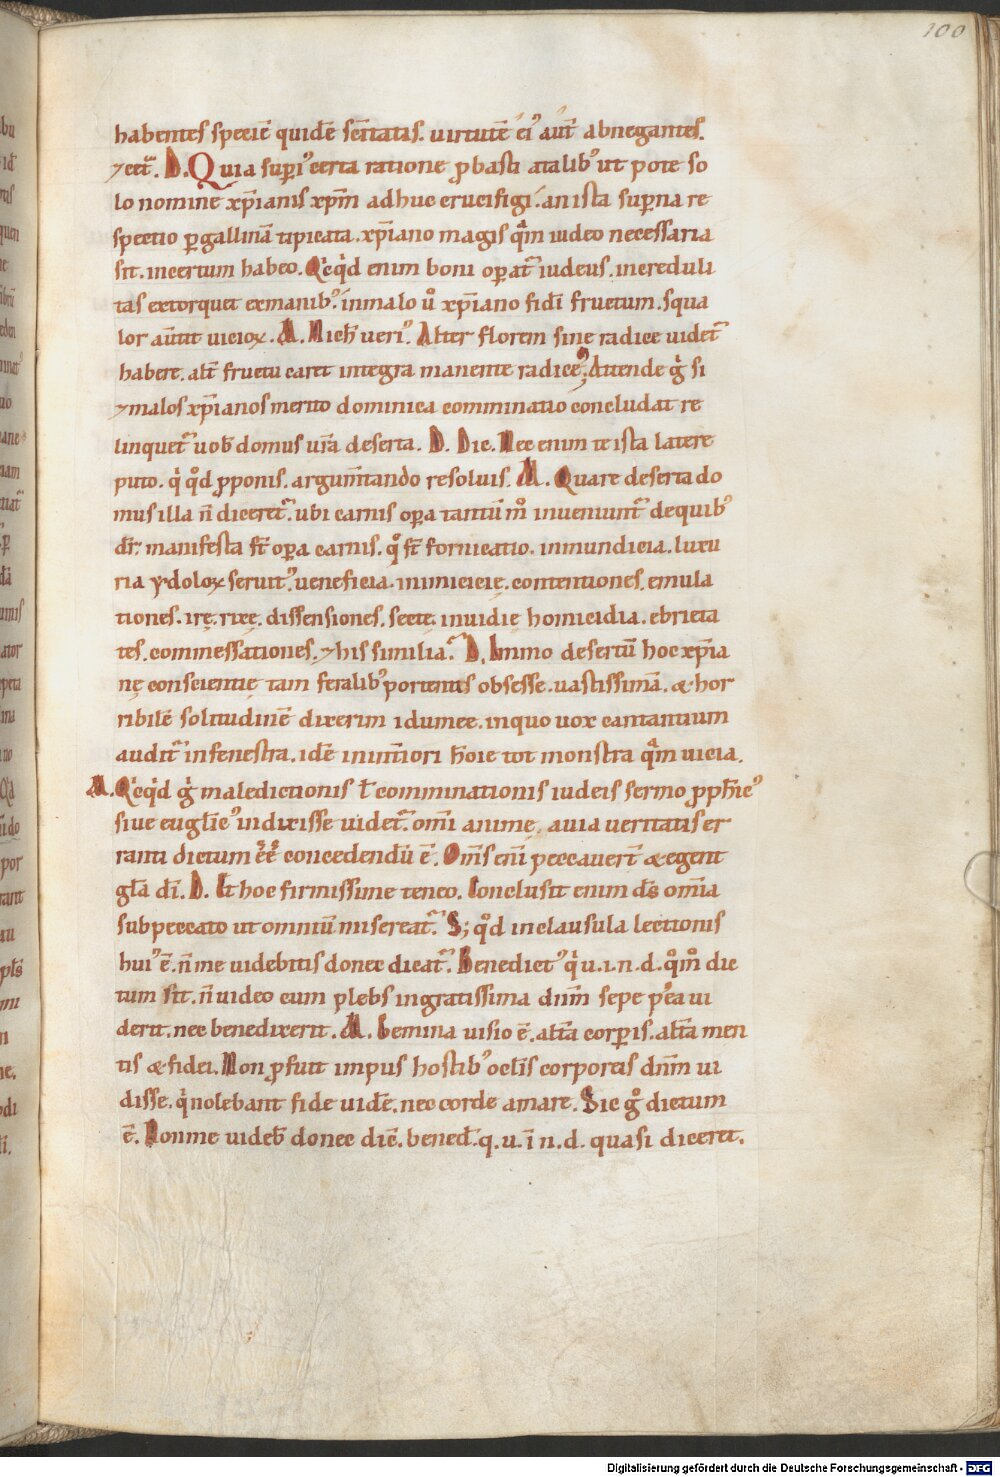 100
habentes speciē quidē sētitatis. virtutē ei᾿ aut̄ abnegantes.
⁊cet̃. D. Quia superi᾿ certa ratione ꝓbasti atalib᾿ ut pote so
lo nomine xp̄ianis xp̄m adhuc crucifigi. an ista sup̱na re
spectio ꝑ gallinā tipicata. xp̄iano magis qᷓm iudeo necessaria
sit. incertum habeo. Qͥcqͥd enim boni oꝑat̃ iudeus. increduli
tas extorquet exmanib᾿. inmalo u̓ xp̄iano fidi fructum. squa
lor aufert uicioꝝ. M. Nich̄ ueri᾿. Alter florem sine radice uidet̃
habere. alt̄ fructu caret integra manente radice. Attende gͥ si
⁊malos xp̄ianos merito dominica comminatio concludat re
linquet̃ uob̄ domus ur̄a deserta. D. Dic. Nec enim te ista latere
puto. qͥ qͦd ꝓponis. argum̄tando resoluis. M. Quare deserta do
mus illa n̄ diceret̃. ubi carnis oꝑa tantū mͦ inueniunt̃ de quib᾿
dr̄. manifesta st̄ oꝑa carnis. qͦ st̄ fornicatio. inmundicia. luxu
ria ydoloꝝ seruit᾿. ueneficia. inimicicię. contentiones. emula
tiones. irę. rixę. dissensiones. secte. inuidię homicidia. ebrieta
tes. commessationes. ⁊his similia. D. Immo desertū hoc xp̄ia
nę conscientię tam feralib᾿ portentis obsesse. uastissimā. & hor
ribilē solitudinē dixerim idumee. inquo uox cantantium
audit̃ infenestra. idē inint̄iori hōie tot monstra qᷓm uicia.
M. Qͥcqͥd gͥ maledictionis ł comminationis iudeis sermo ꝓph̄ie᾿
siue eugl̄ie᾿ indixisse uidet̃. om̄i anime auia ueritatis er
ranti dictum ēē concedendū ē. Om̄s eni peccauer̄t & egent
gl̄a di. D. Et hoc firmissime teneo. Conclusit enim ds̄ om̄ia
subpeccato ut omniū misereat̃. S; qͦd inclausula lectionis
hui᾿ ē. n̄ me uidebitis donec dicat̃. Benedict᾿ qͥ u. i. n. d. qͦm̄ dic
tum sit. n̄ uideo cum plebs ingratissima dn̄m sepe p᾿ea ui
derit. nec benedixerit. M. Gemina uisio ē. alt̄a corꝑis. alt̄a men
tis & fidei. Non ꝓfuit impiis hostib᾿ ocl̄is corporeis dn̄m ui
disse. qͥ nolebant fide uidē. nec corde amare. Sic gͦ dictum
ē. Nonme uideb̄ donec dic̄. bened̄. q. u. ī n. d. quasi diceret.
Digitalisierung gefördert durch die Deutsche Forschungsgemeinschaft - DFG